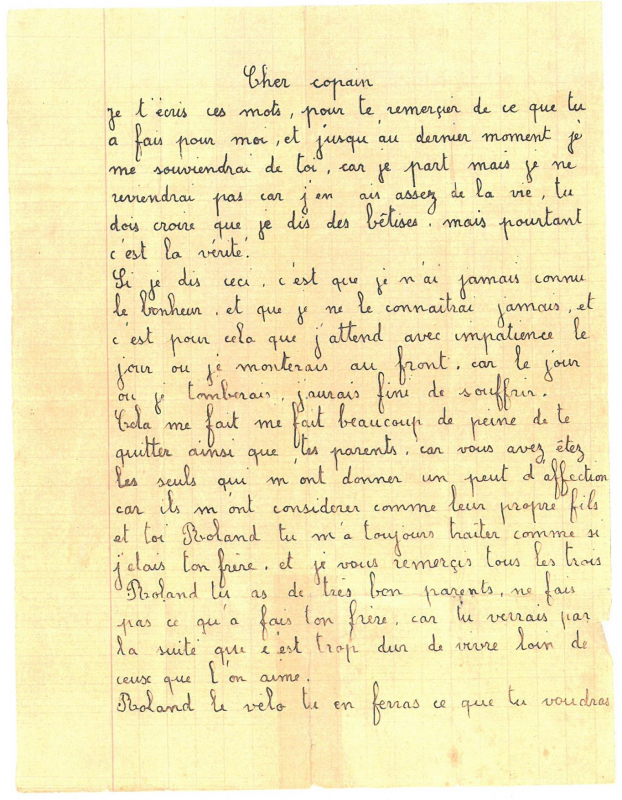 Cher copain
je t'écris ces mots, pour te remerçier de ce que tu
a fais pour moi, et jusqu'au dernier moment je
me souviendrai de toi, car je part mais je ne
revrendrai pas car j'en ais assez de la vie, tu
dois croire que je dis des bêtises. mais pourtant
c'est la vérité.
Si je dis ceci. c'est que je n'ai jamais connu
le bonheur. et que je ne le connaîtrai jamais, et
c'est pour cela que j'attend avec impatience le
jour ou je monterais au front. car le jour
ou je tomberais, j'aurais fini de souffrir.
Cela me fait me fait beaucoup de peine de te
quitter ainsi que tes parents, car vous avez êtez
les seuls qui m'ont donner un peut d'affection
car ils m'ont considerer comme leur propre fils
et toi Roland tu m'a toujours traiter comme si
j'etais ton frère. et je vous remerçis tous les trois
Roland tu as de très bon parents, ne fais
pas ce qu'a fais ton frère, car tu verrais par
la suite que c'est trop dur de vivre loin de
ceux que l'on aime.
Roland le vélo tu en ferras ce que tu voudras